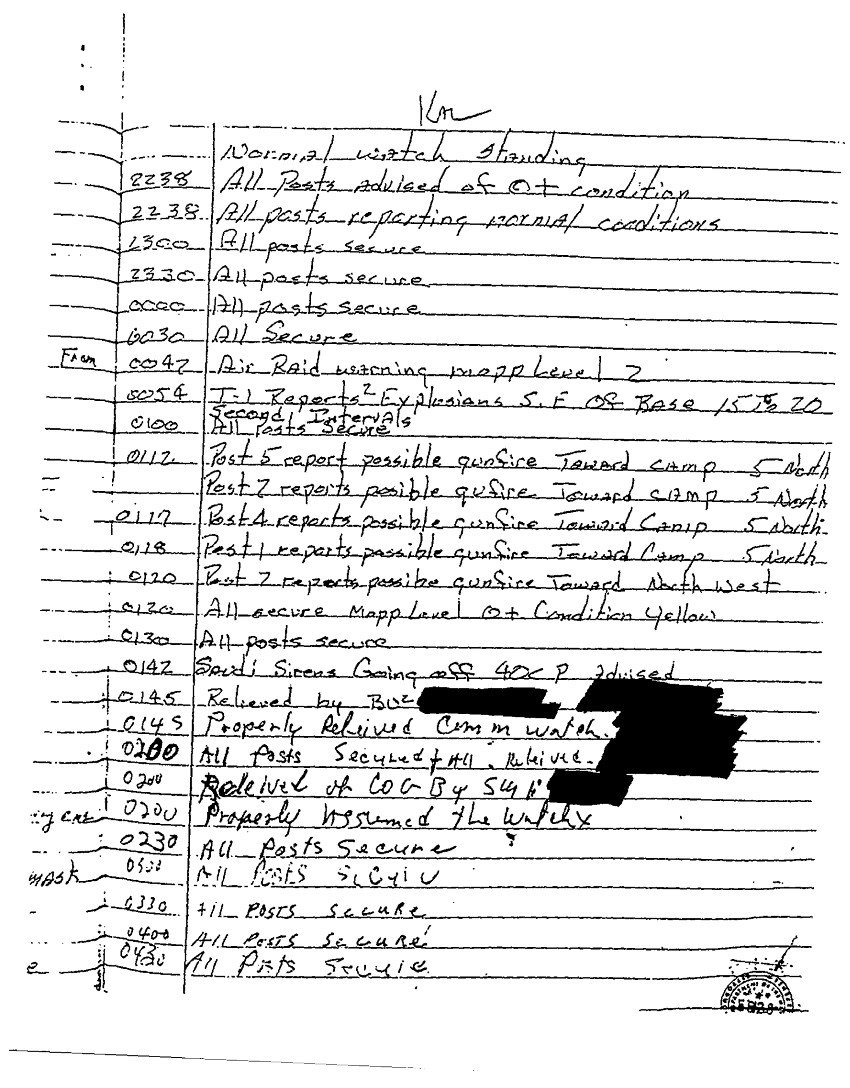 Normal watch standing
2238 All Posts advised of 0+ condition
2238 All posts reporting normal conditions
2300 All posts secure
2330 All posts secure
0000 All posts secure
0030 All Secure
From 0047 Air Raid warning mopp Level 2
0054 T-1 Reports 2 Explosions S.E OF Base 15 To 20
Second Intervals
0100 All Posts Secure
0112 Post 5 report possible gunfire Toward camp 5 North
Post 7 reports possible gufire Toward camp 5 North
0117 Post 4 reports possible gunfire Toward Camp 5 North
0118 Post 1 reports possible gunfire Toward Camp 5 North
0120 Post 7 reports possibe gunfire Toward North West
0120 All secure Mopp Level 0+ Condition Yellow
0130 All posts secure
0142 Saudi Sirens Going off advised
0145 Relieved by BU2
0145 Properly Releived Comm watch.
0200 All Posts Secured + All Releived.
0200 Releived of COG By
0200 Properly Assumed the Watch
0230 All Posts Secure
mask All Posts
0330 All Posts secure
0400 All Posts secure
0430 All Posts Secure